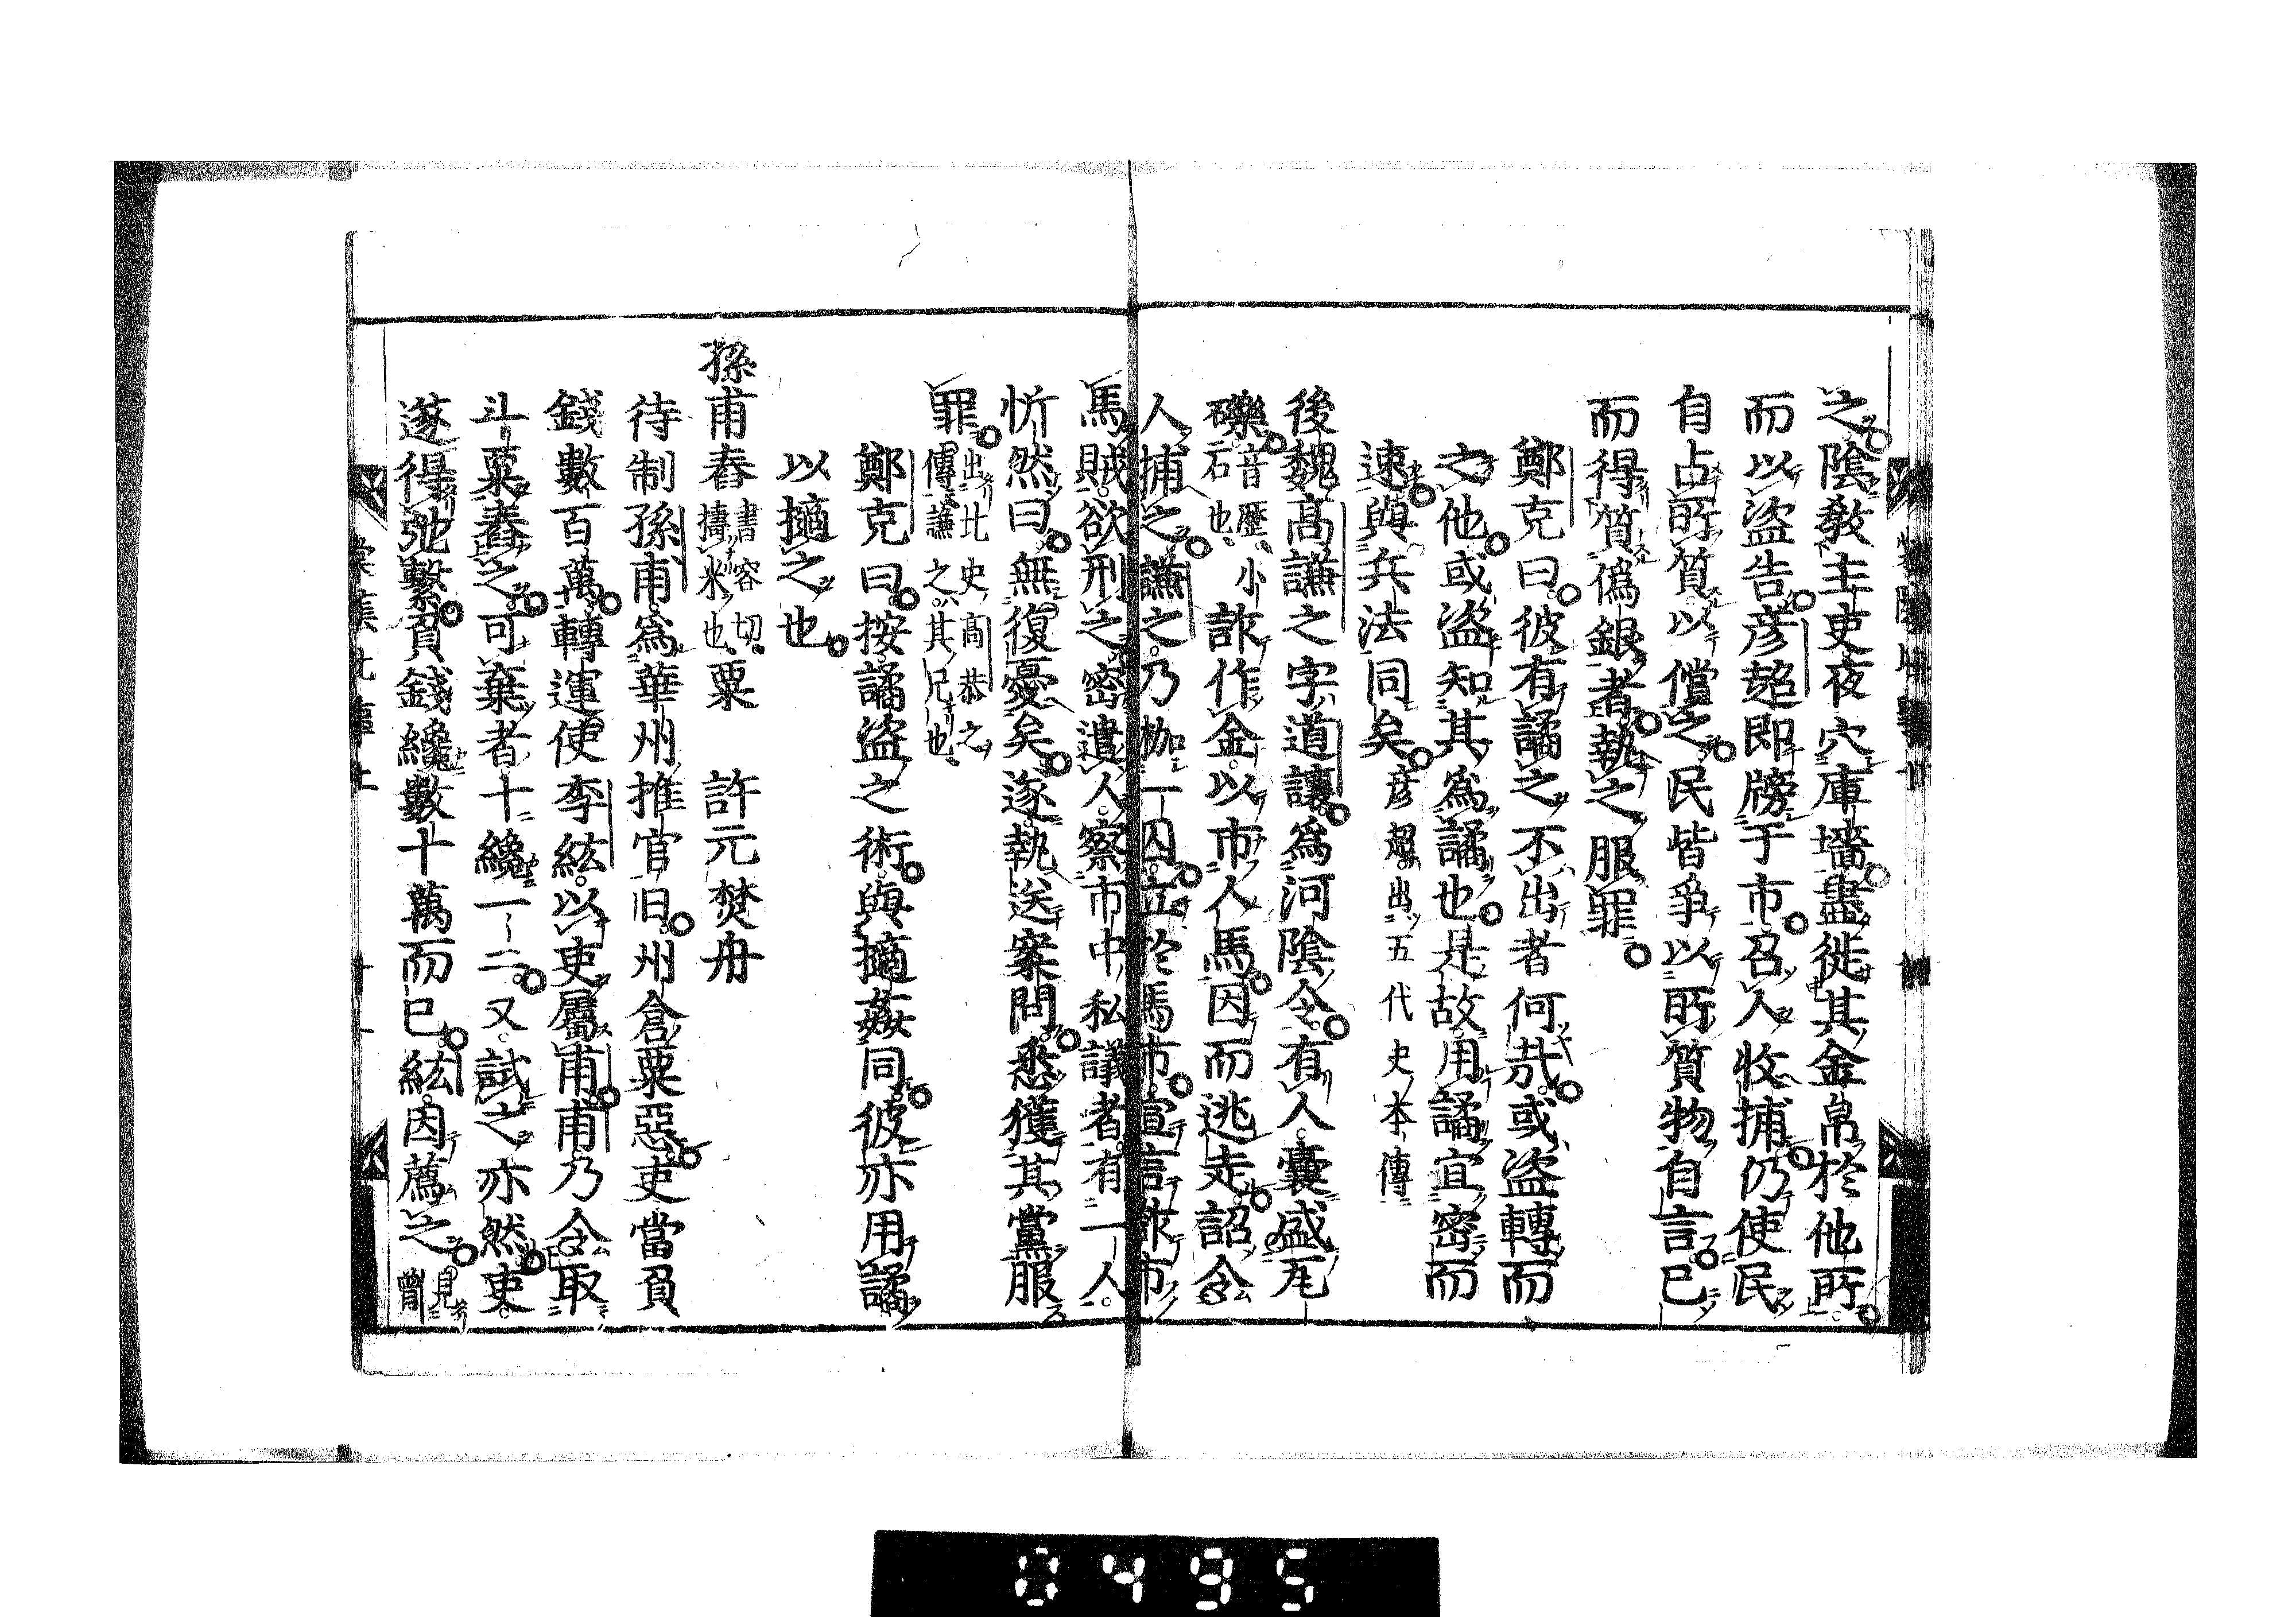 之陰敎主吏夜穴庫墻盡徙其金帛於他所
而以盜告彦超即牓于市召人收捕仍使民
自占所質以償之民皆爭以所質物自言已
而得質僞銀者執之服罪
鄭克曰彼有譎之不出者何㢤或盜轉而
之他或盜知其爲譎也是故用譎宜密而
速與兵法同矣彦超出五代史本傳
後魏髙謙之字道讓爲河陰令有人囊盛瓦
礫音歷小石也詐作金以市人馬因而逃走詔令
人捕之謙之乃枷一囚立於馬市宣言詐市
馬賊欲刑之密遣人察市中私議者有二人
忻然曰無復憂矣遂執送案問悉獲其黨服
罪出北史髙恭之傳謙之其兄也
鄭克曰按譎盜之術與擿姦同彼亦用譎
以擿之也
孫甫舂書容切擣米也粟 許元焚舟
待制孫甫爲華州推官旧州倉粟惡吏當負
錢數百萬轉運使李紘以吏屬甫甫乃令取
斗粟舂之可棄者十纔一二又試之亦然吏
遂得弛繫負錢纔數十萬而已紘因薦之見曾
0495